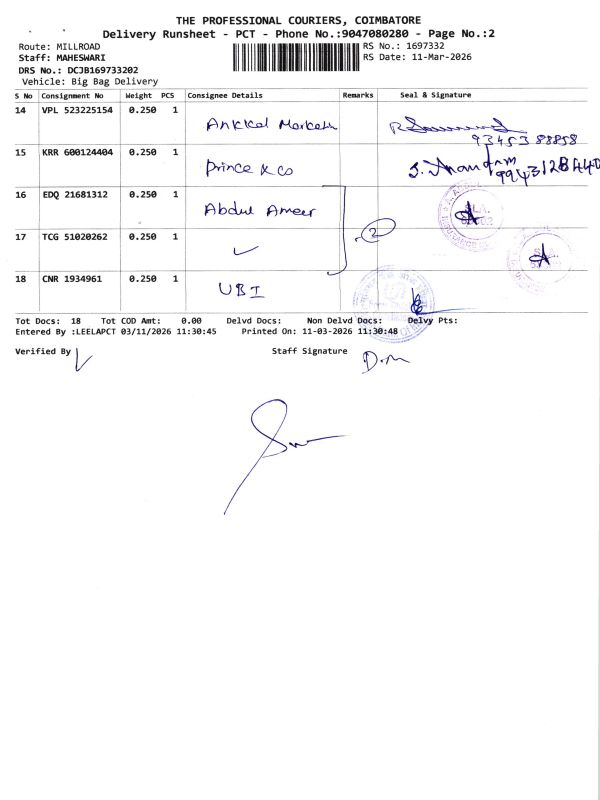 THE PROFESSIONAL COURIERS, COIMBATORE
Delivery Runsheet - PCT - Phone No.:9047080280 - Page No.:2
Route: MILLROAD
RS No.: 1697332
Staff: MAHESWARI
RS Date: 11-Mar-2026
DRS No.: DCJB169733202
Vehicle: Big Bag Delivery
S No Consignment No Weight PCS Consignee Details Remarks Seal & Signature
14 VPL 523225154 0.250 1
93453 88858
15 KRR 600124404 0.250 1 Prince & co
16 EDQ 21681312 0.250 1 Abdul Ameer
2
17 TCG 51020262 0.250 1
18 CNR 1934961 0.250 1 UBI
Tot Docs: 18 Tot COD Amt: 0.00 Delvd Docs: Non Delvd Docs: Delvy Pts:
Entered By :LEELAPCT 03/11/2026 11:30:45 Printed On: 11-03-2026 11:30:48
Verified By Staff Signature